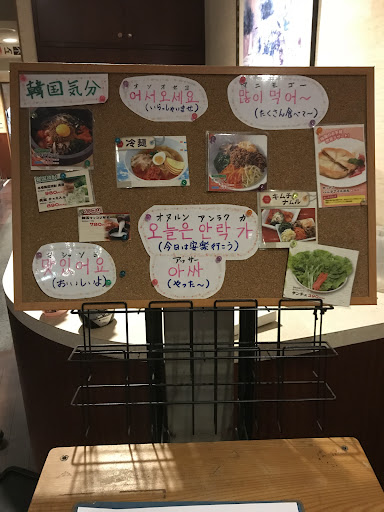 韓国気分
オソオセヨ
어서오세요
(いらっしゃいませ)
マニモゴー
많이 먹어~
(たくさん食べてー)
冷麺
オヌルン アンラク ガ
오늘은 안락 가
(今日は安楽行こう)
キムチ/
ナムル
マシッソヨ
맛있어요
(おいしいよ)
アッサー
아싸
(やったー)
サンチュ